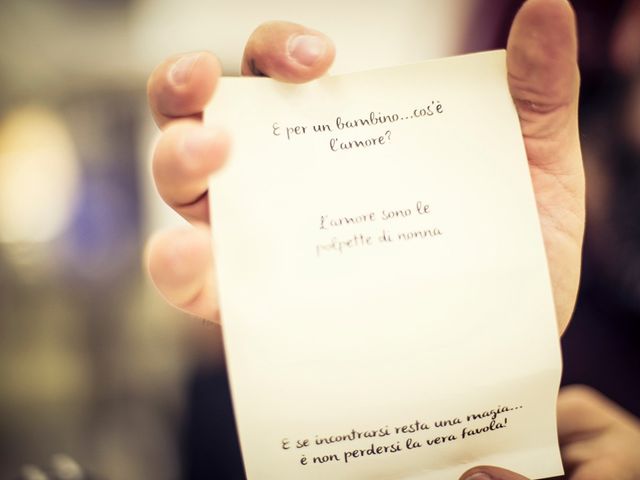 E per un bambino...cos'è
l'amore?
L'amore sono le
polpette di nonna
E se incontrarsi resta una magia...
è non perdersi la vera favola!